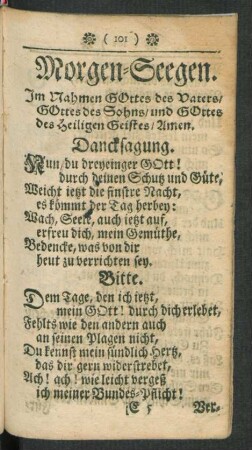 ( 101 )
Morgen-Seegen.
Im Nahmen GOttes des Vaters/
GOttes des Sohns/ und GOttes
des Heiligen Geistes/ Amen.
Dancksagung.
Nun/ du dreyeiniger GOtt!
durch deinen Schutz und Güte,
Weicht ietzt die finstre Nacht,
es kömmt der Tag herbey:
Wach, Seele, auch ietzt auf,
erfreu dich, mein Gemüthe,
Bedencke, was von dir
heut zu verrichten sey.
Bitte.
Dem Tage, den ich ietzt,
mein GOtt! durch dich erlebet,
Fehlts wie den andern auch
an seinen Plagen nicht,
Du kennst mein sündlich Hertz,
das dir gern widerstrebet,
Ach! ach! wie leicht vergeß
ich meiner Bundes-Pflicht!
E 5 Ver-